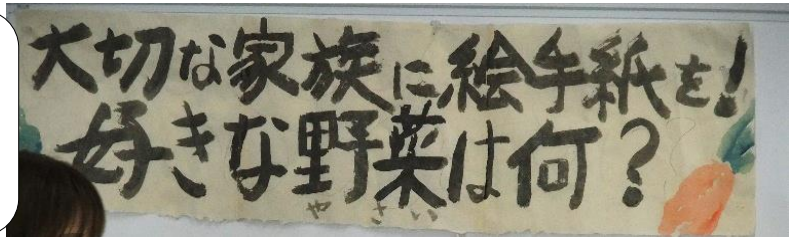 大切な家族に絵手紙を!
好きな野菜は何?
やさい